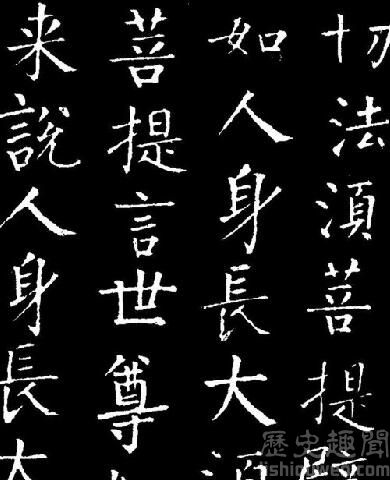 切法湏菩提
如人身長大
菩提言世尊
来說人身長大
歷史趣聞
lishiquwen.com